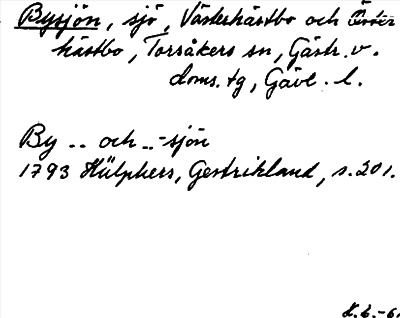 Bysjön, sjö, Västerhästbo och Öster
hästbo, Torsåkers sn, Gästr. v.
doms. tg, Gävl. l.
By .. och ..-sjön
1793 Hülphers, Gestrikland, s. 201.